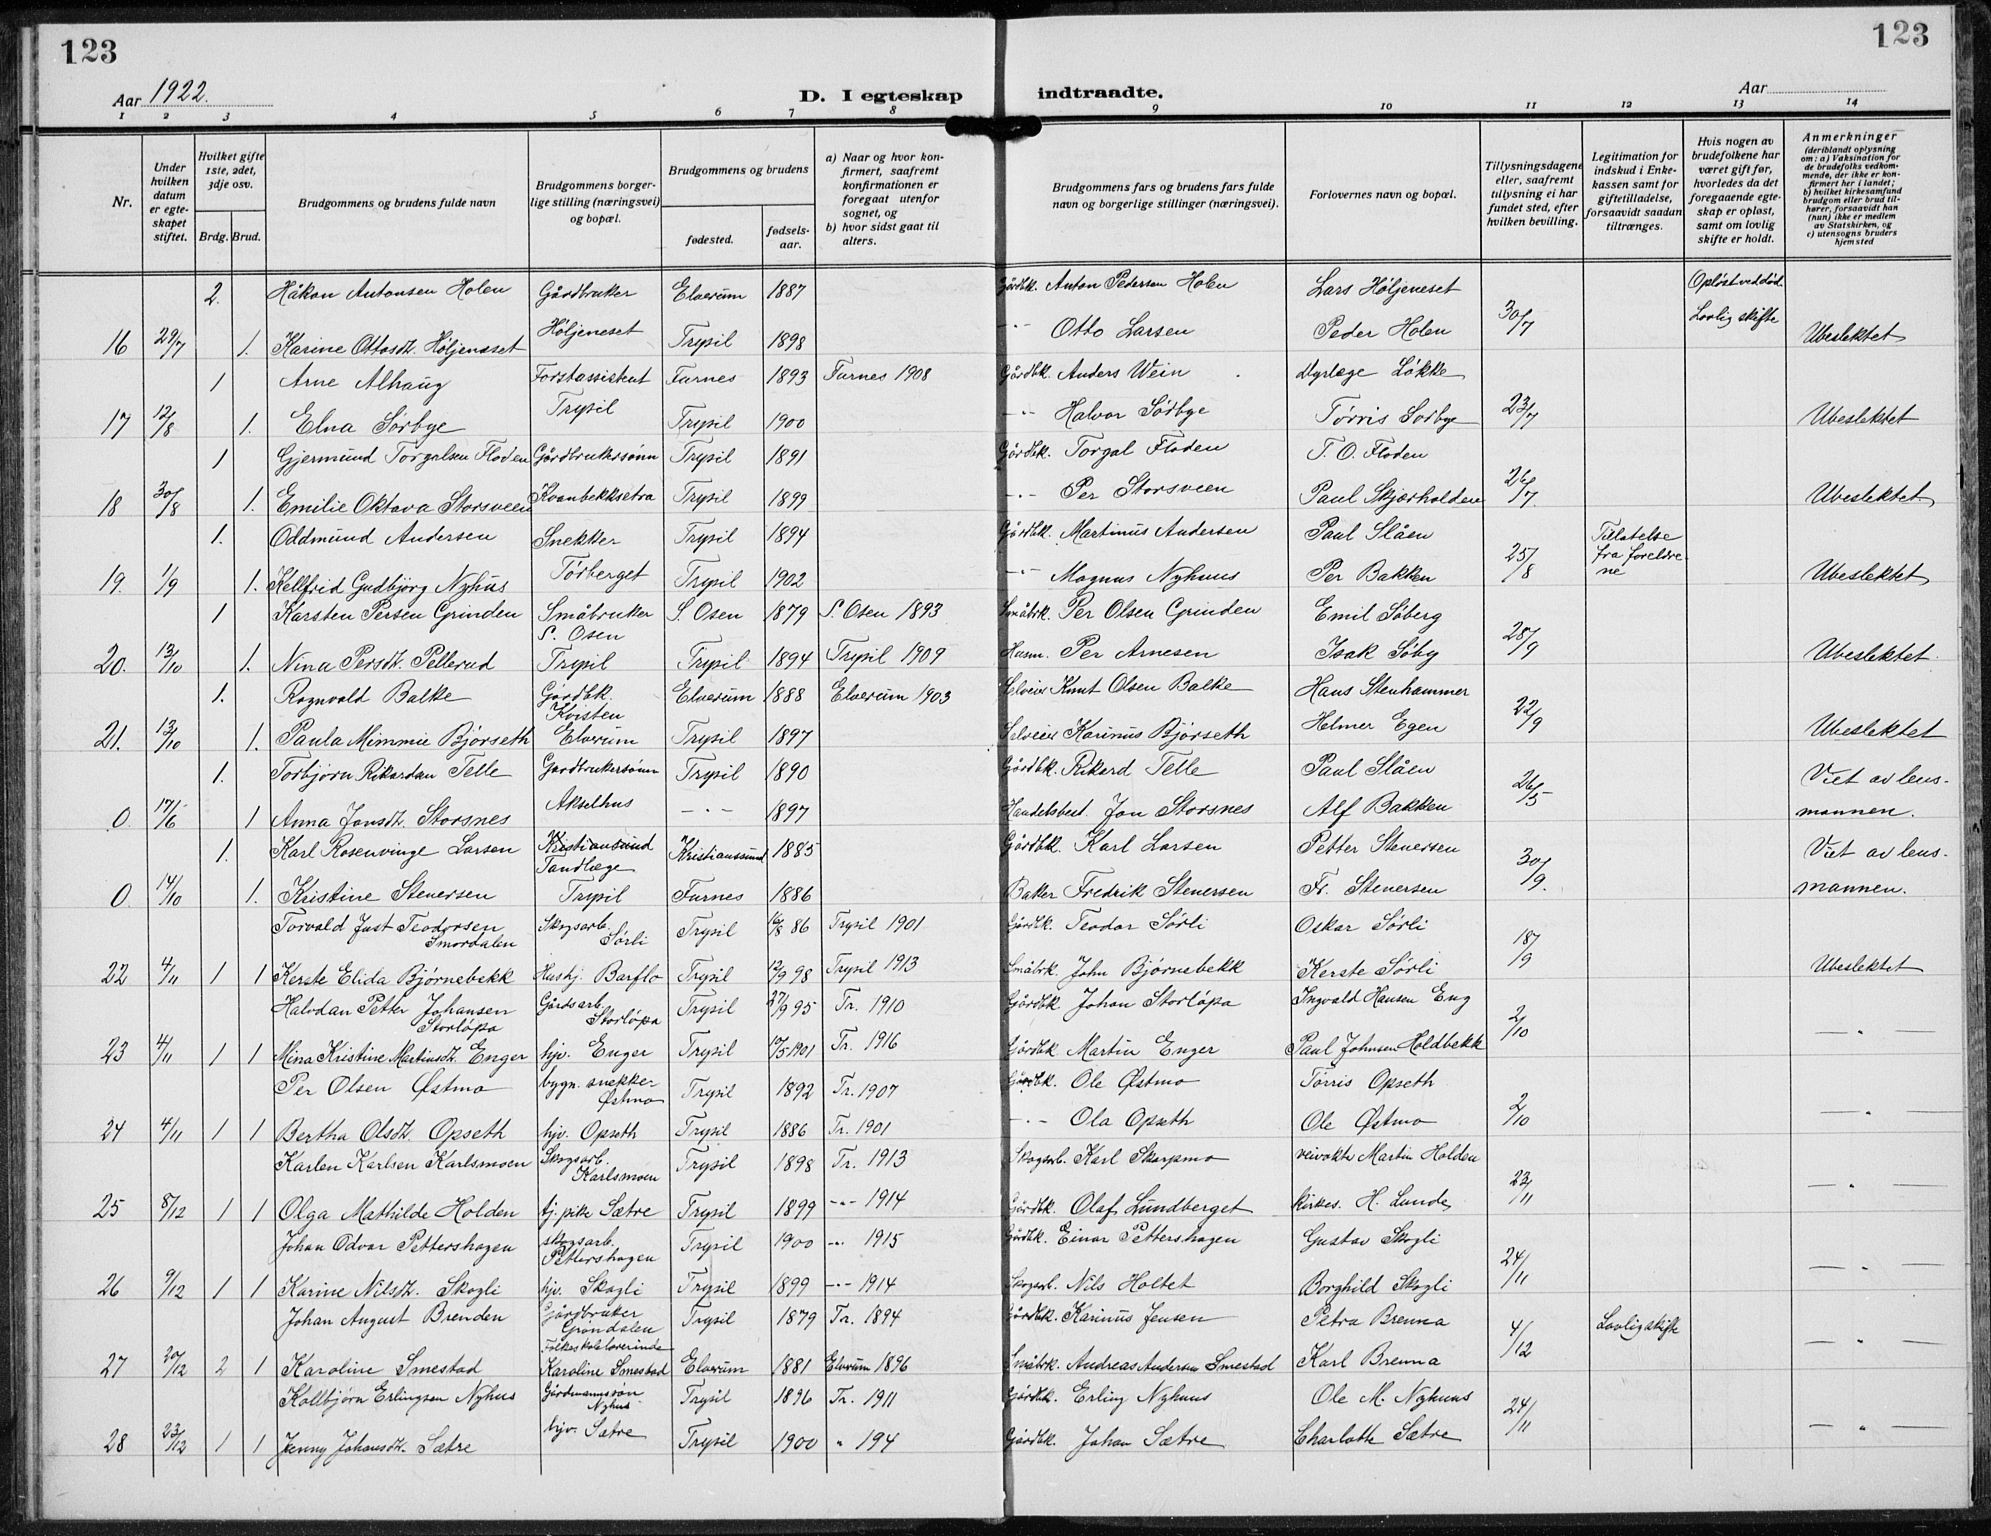 123
123
Aar 1922.
D. I egteskap indtraadte.
Aar
1 2 3 4 5 6 7 8 9 10 11 12 13 14
Nr.
Under hvilken datum er egteskapet stiftet.
Hvilket gifte 1ste, 2det, 3dje osv.
Brdg. Brud.
Brudgommens og brudens fulde navn
Brudgommens borgerlige stilling (næringsvei) og bopæl.
Brudgommens og brudens
fødested.
fødselsaar.
a) Naar og hvor konfirmert, saafremt konfirmationen er foregaat utenfor sognet, og
b) hvor sidst gaat til alters.
Brudgommens fars og brudens fars fulde navn og borgerlige stillinger (næringsvei).
Forlovernes navn og bopæl.
Tillysningsdagene eller, saafremt tillysning ei har fundet sted, efter hvilken bevilling.
Legitimation for indskud i Enkekassen samt for giftetilladelse, forsaavidt saadan tiltrænges.
Hvis nogen av brudefolkene har været gift før, hvorledes da det foregaaende egteskap er opløst, samt om lovlig skifte er holdt.
Anmerkninger (deriblandt oplysning om: a) Vaksination for de brudefolks vedkommende, der ikke er konfirmert her i landet; b) hvilket kirkesamfund brudgom eller brud tilhører, forsaavidt han (hun) ikke er medlem av Statskirken, og c) utensogns bruders hjemsted
2. Håkon Antonsen Holen Gårdbruker Elverum 1887 Gårdbk. Anton Pedersen Holen Lars Høljeneset Opløst ved død.
16 29/7 1. Karine Ottosdt. Høljeneset Høljeneset Trysil 1898 -"- Otto Larsen Peder Holen 30/7 Lovlig skifte Ubeslektet
1 Arne Alhaug Forstassistent Furnes 1893 Furnes 1908 Gårdbk. Anders Wein Dyrlæge Løkke
17 12/8 1. Elna Sørbye Trysil Trysil 1900 -"- Halvor Sørbye Tørris Sørbye 23/7 Ubeslektet
1 Gjermund Torgalsen Floden Gårdbrukersønn Trysil 1891 Gårdbk. Torgal Floden T. O. Floden
18 30/8 1. Emilie Oktava Storsveen Kvanbekksetra Trysil 1899 -"- Per Storsveen Paul Skjærholden 26/7. Ubeslektet
1. Oddmund Andersen Snekker Trysil 1894 Gårdbk. Martinus Andersen Paul Slåen Tillatelse
19. 1/9 1. Hellfrid Gudbjørg Nyhus Tørberget Trysil 1902 -"- Magnus Nyhuus Per Bakken 25/8 fra foreldrene Ubeslektet
1 Karsten Persen Grinden Småbruker S. Osen 1879 S. Osen 1893 Småbrk. Per Olsen Grinden Emil Søberg
S. Osen
20. 13/10 1. Nina Persdt. Pellerud Trysil Trysil 1894 Trysil 1909 Husm. Per Arnesen Isak Søby 28/9 Ubeslektet.
1. Ragnvald Balke Gårdbk. Elverum 1888 Elverum 1903 Selveier Knut Olsen Balke Hans Stenhammer
Kvisten
21. 13/10 1. Paula Mimmie Bjørseth Elverum Trysil 1897 Selveier Karinus Bjørseth Helmer Egen 22/9 Ubeslektet
1. Torbjørn Rikardsen Telle Gårdbrukersønn Trysil 1890 Gårdbk. Rikard Telle Paul Slåen Viet av lens-
0. 17/6 1 Anna Jonsdt. Storsnes Akselhus -"- 1897 Handelsbest. Jon Storsnes Alf Bakken 26/5 mannen.
1. Karl Rosenvinge Larsen Kristiansund Kristianssund 1885 Gårdbk. Karl Larsen Petter Stenersen Viet av lens-
Tandlæge
0. 14/10 1. Kristine Stenersen Trysil Furnes 1886 Baker Fredrik Stenersen Fr. Stenersen 30/9. mannen.
Torvald Just Teodorsen Smordalen Skogsarb. Sørli Trysil 16/8 86 Trysil 1901 Gårdbk. Teodor Sørli Oskar Sørli
22 4/11 1 1 Kerste Elida Bjørnebekk Hushj. Barflo Trysil 12/9 98 Trysil 1913 Småbrk. John Bjørnebekk Kerste Sørli 18/9 Ubeslektet
Halvdan Petter Johansen Storløpa Gårdsarb. Storløpa Trysil 27/9 95 Tr. 1910 Gårdbk Johan Storløpa Ingvald Hansen Eng
23 4/11 1 1 Mina Kristine Martinsdt. Enger hjv. Enger Trysil 17/5 1901 Tr. 1916 Gårdbk Martin Enger Paul Johnsen Holdbekk 2/10 — " —
Per Olsen Østmo bygn. snekker Østmo Trysil 1892 Tr. 1907 Gårdbk. Ole Østmo Tørris Opseth
24 4/11 1 1 Bertha Olsdt. Opseth hjv. Opseth Trysil 1886 Tr. 1901 -"- Ola Opseth Ole Østmo 2/10 — " —
Karlen Karlsen Karlsmoen Skogsarb. Karlsmoen Trysil 1898 Tr. 1913 Skogsarb. Karl Skarpmo veivokter Martin Holden
25 8/12 1 1 Olga Mathilde Holden tj. pike Sætre Trysil 1899 -"- 1914 Gårdbk. Olaf Lundberget Kirkes. H. Lunde 23/11 — " —
Johan Odvar Pettershagen skogsarb. Pettershagen Trysil 1900 -"- 1915 Gårdbk. Einar Pettershagen Gustav Skogli
26 9/12 1 1 Karine Nilsdt. Skogli hjv. Skogli Trysil 1899 -"- 1914 Skogsarb. Nils Holtet Borghild Skogli 24/11 — " —
Johan August Brenden Gårdbruker Grøndalen Trysil 1879 Tr. 1894 Gårdbk. Karinus Jensen Petra Brenna Lovlig skifte
Folkeskolelærerinde
27 20/12 2 1 Karoline Smestad Karoline Smestad Elverum 1881 Elverum 1896 Småbrk. Andreas Andersen Smestad Karl Brenna 4/12 — " —
Kollbjørn Erlingsen Nyhus Gårdmannssøn Nyhus Trysil 1896 Tr. 1911 Gårdbk. Erling Nyhuus Ole M. Nyhuus
28 23/12 1 1 Jenny Johansdt. Sætre hjv. Sætre Trysil 1900 " 194 Gårdbk. Johan Sætre Charlotte Sætre 24/11 — " —